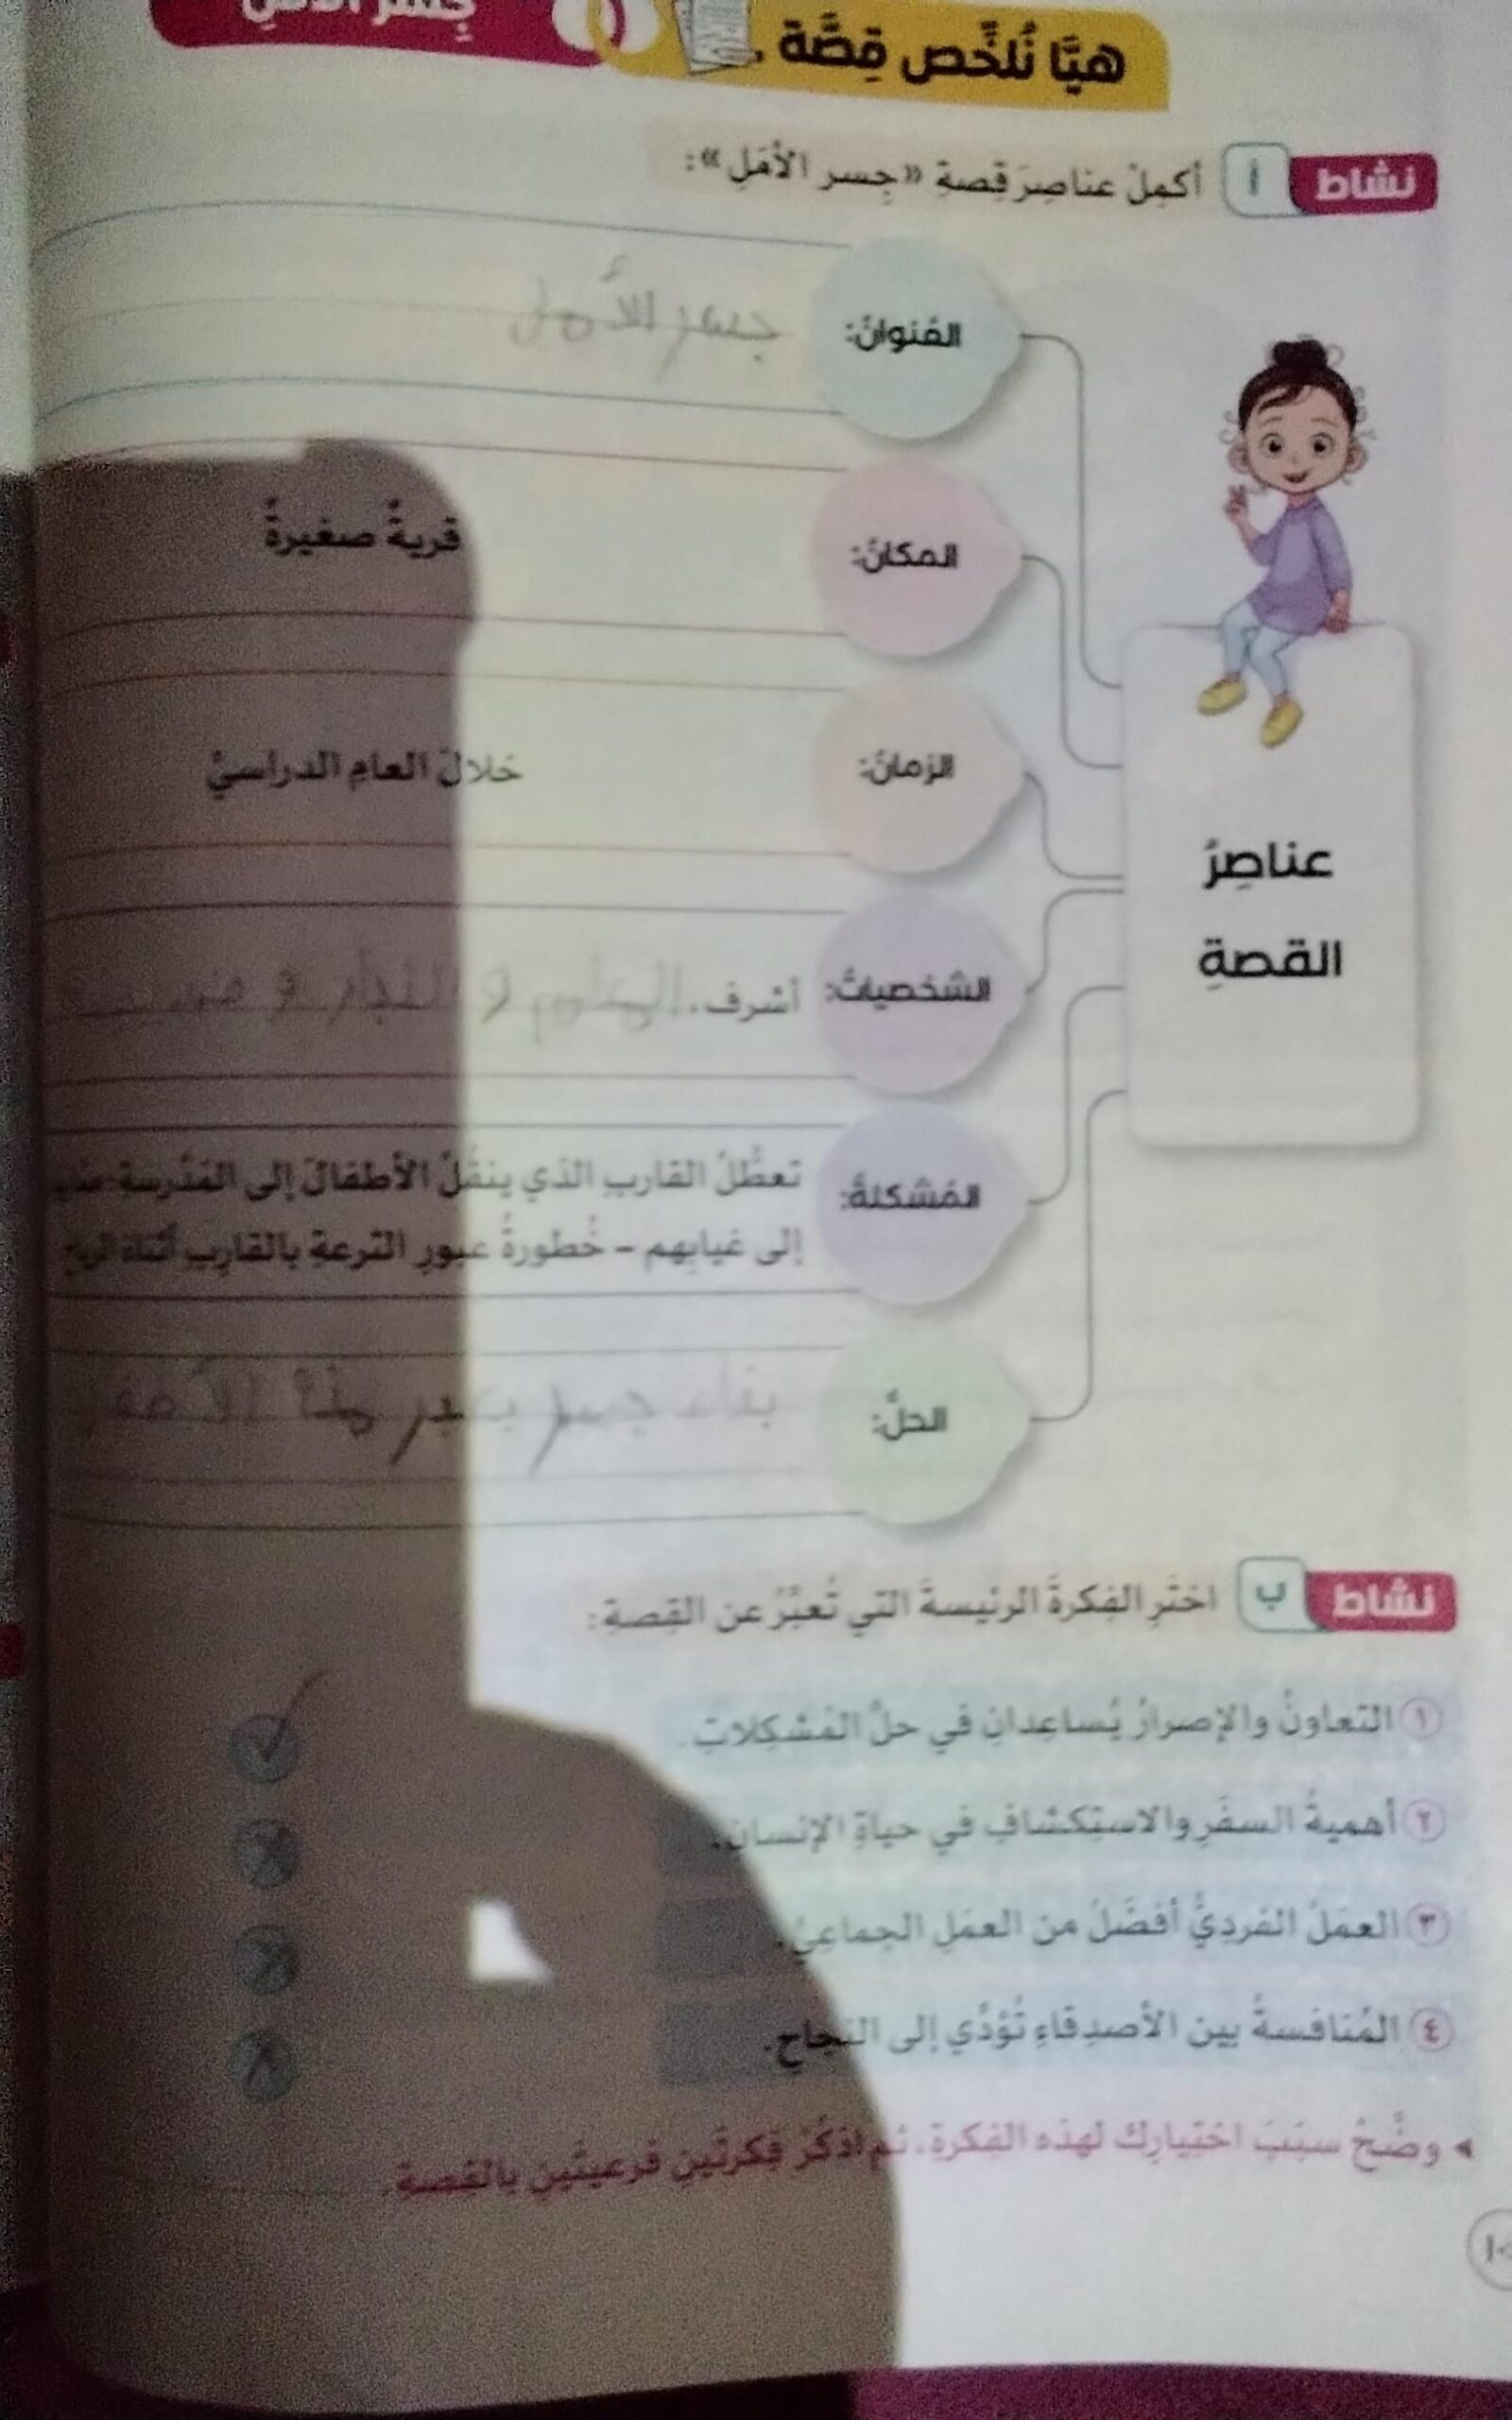 جسر الأمل
هيَّا نُلخِّص قِصَّة
نشاط أ أكمِلْ عناصِرَ قِصةِ «جِسر الأمَلِ»:
العُنوانُ: جسر الأمل
المكانُ: قريةٌ صغيرةٌ
الزمانُ: خلالَ العامِ الدراسيِّ
عناصِرُ
القصةِ
الشخصياتُ: أشرف. المعلم و النجار و
المُشكلةُ: تعطُّلُ القاربِ الذي ينقُلُ الأطفالَ إلى المَدْرسةِ
إلى غيابِهم – خُطورةُ عبورِ الترعةِ بالقاربِ أثناءَ
الحلُّ: بناء جسر يعبر
نشاط ب اختَرِ الفِكرةَ الرئيسةَ التي تُعبِّرُ عن القِصةِ:
١ التعاونُ والإصرارُ يُساعِدانِ في حلِّ المُشكِلاتِ.
٢ أهميةُ السفَرِ والاستِكشافِ في حياةِ الإنسانِ.
٣ العمَلُ الفردِيُّ أفضَلُ من العمَلِ الجماعِيِّ.
٤ المُنافسةُ بين الأصدِقاءِ تُؤدِّي إلى النجاحِ.
وضِّحْ سبَبَ اختِيارِك لهذه الفِكرةِ، ثم اذكُرْ فِكرتَينِ فرعيتَينِ بالقصةِ.